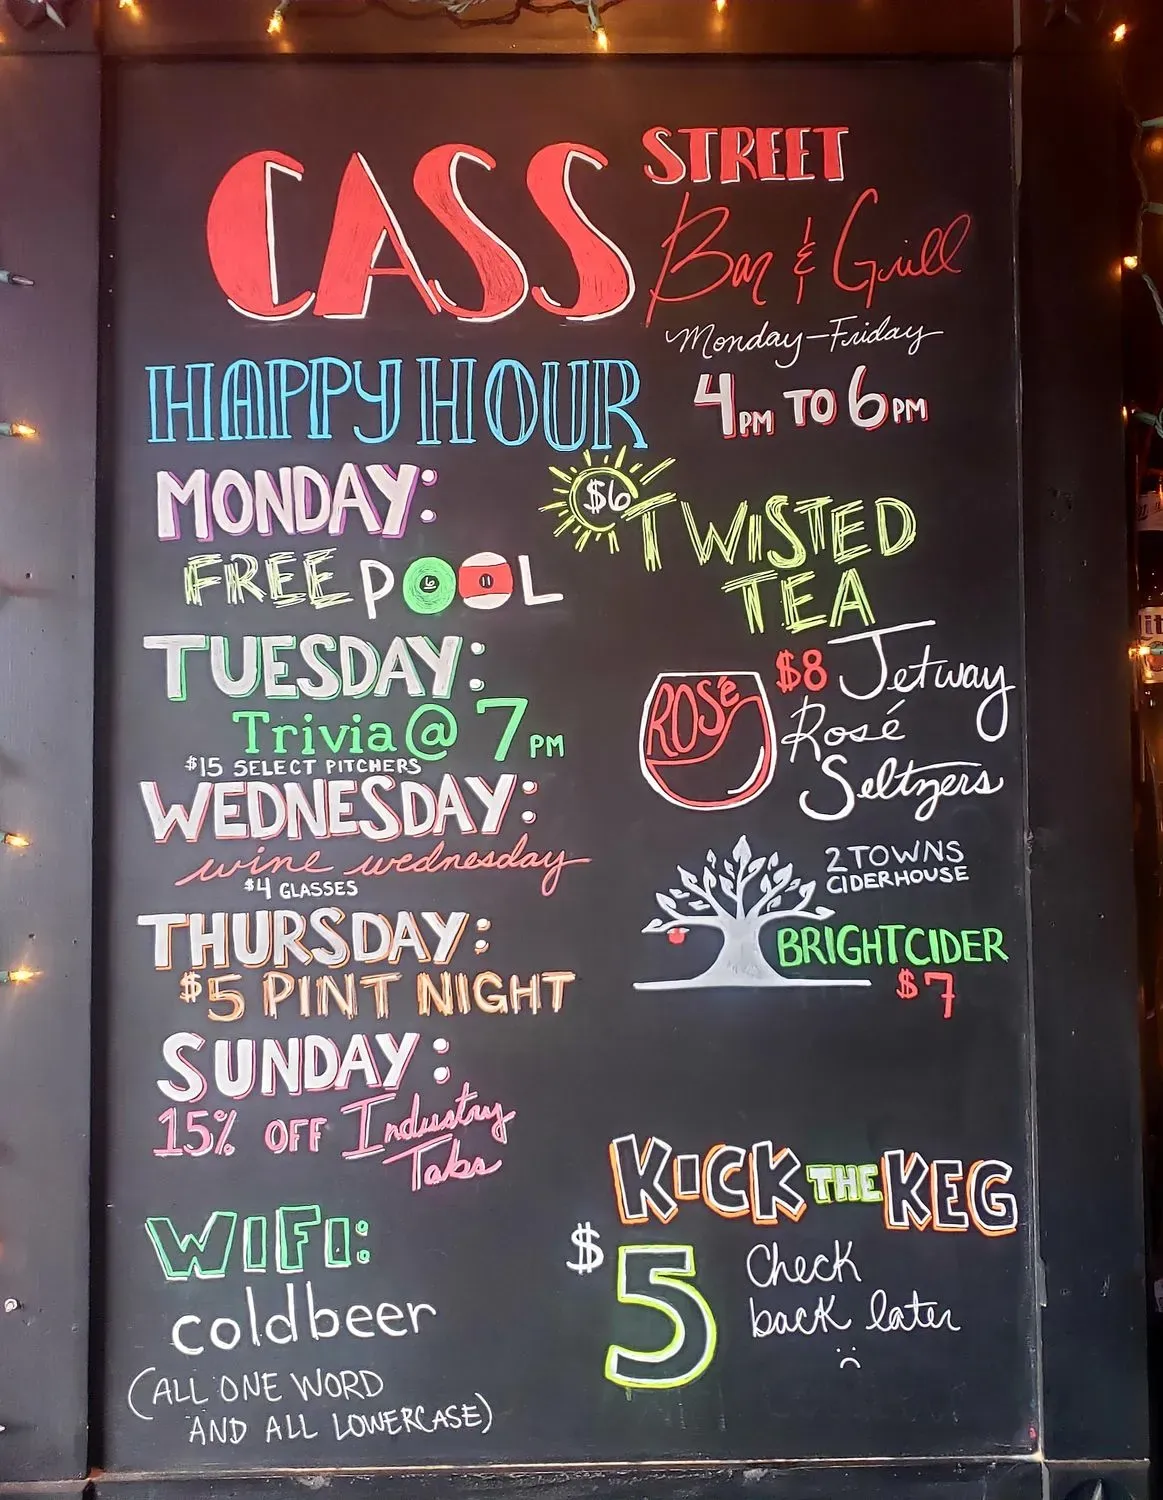 CASS STREET
Bar & Grill
Monday-Friday
HAPPY HOUR 4PM TO 6PM
MONDAY:
FREE POOL
TUESDAY:
Trivia @ 7PM
$15 SELECT PITCHERS
WEDNESDAY:
wine wednesday
$4 GLASSES
THURSDAY:
$5 PINT NIGHT
SUNDAY:
15% OFF Industry
Tabs
WIFI:
coldbeer
(ALL ONE WORD
AND ALL LOWERCASE)
$6 TWISTED
TEA
ROSé
$8 Jetway
Rosé
Seltzers
2 TOWNS
CIDERHOUSE
BRIGHTCIDER
$7
KICK THE KEG
$5
Check
back later